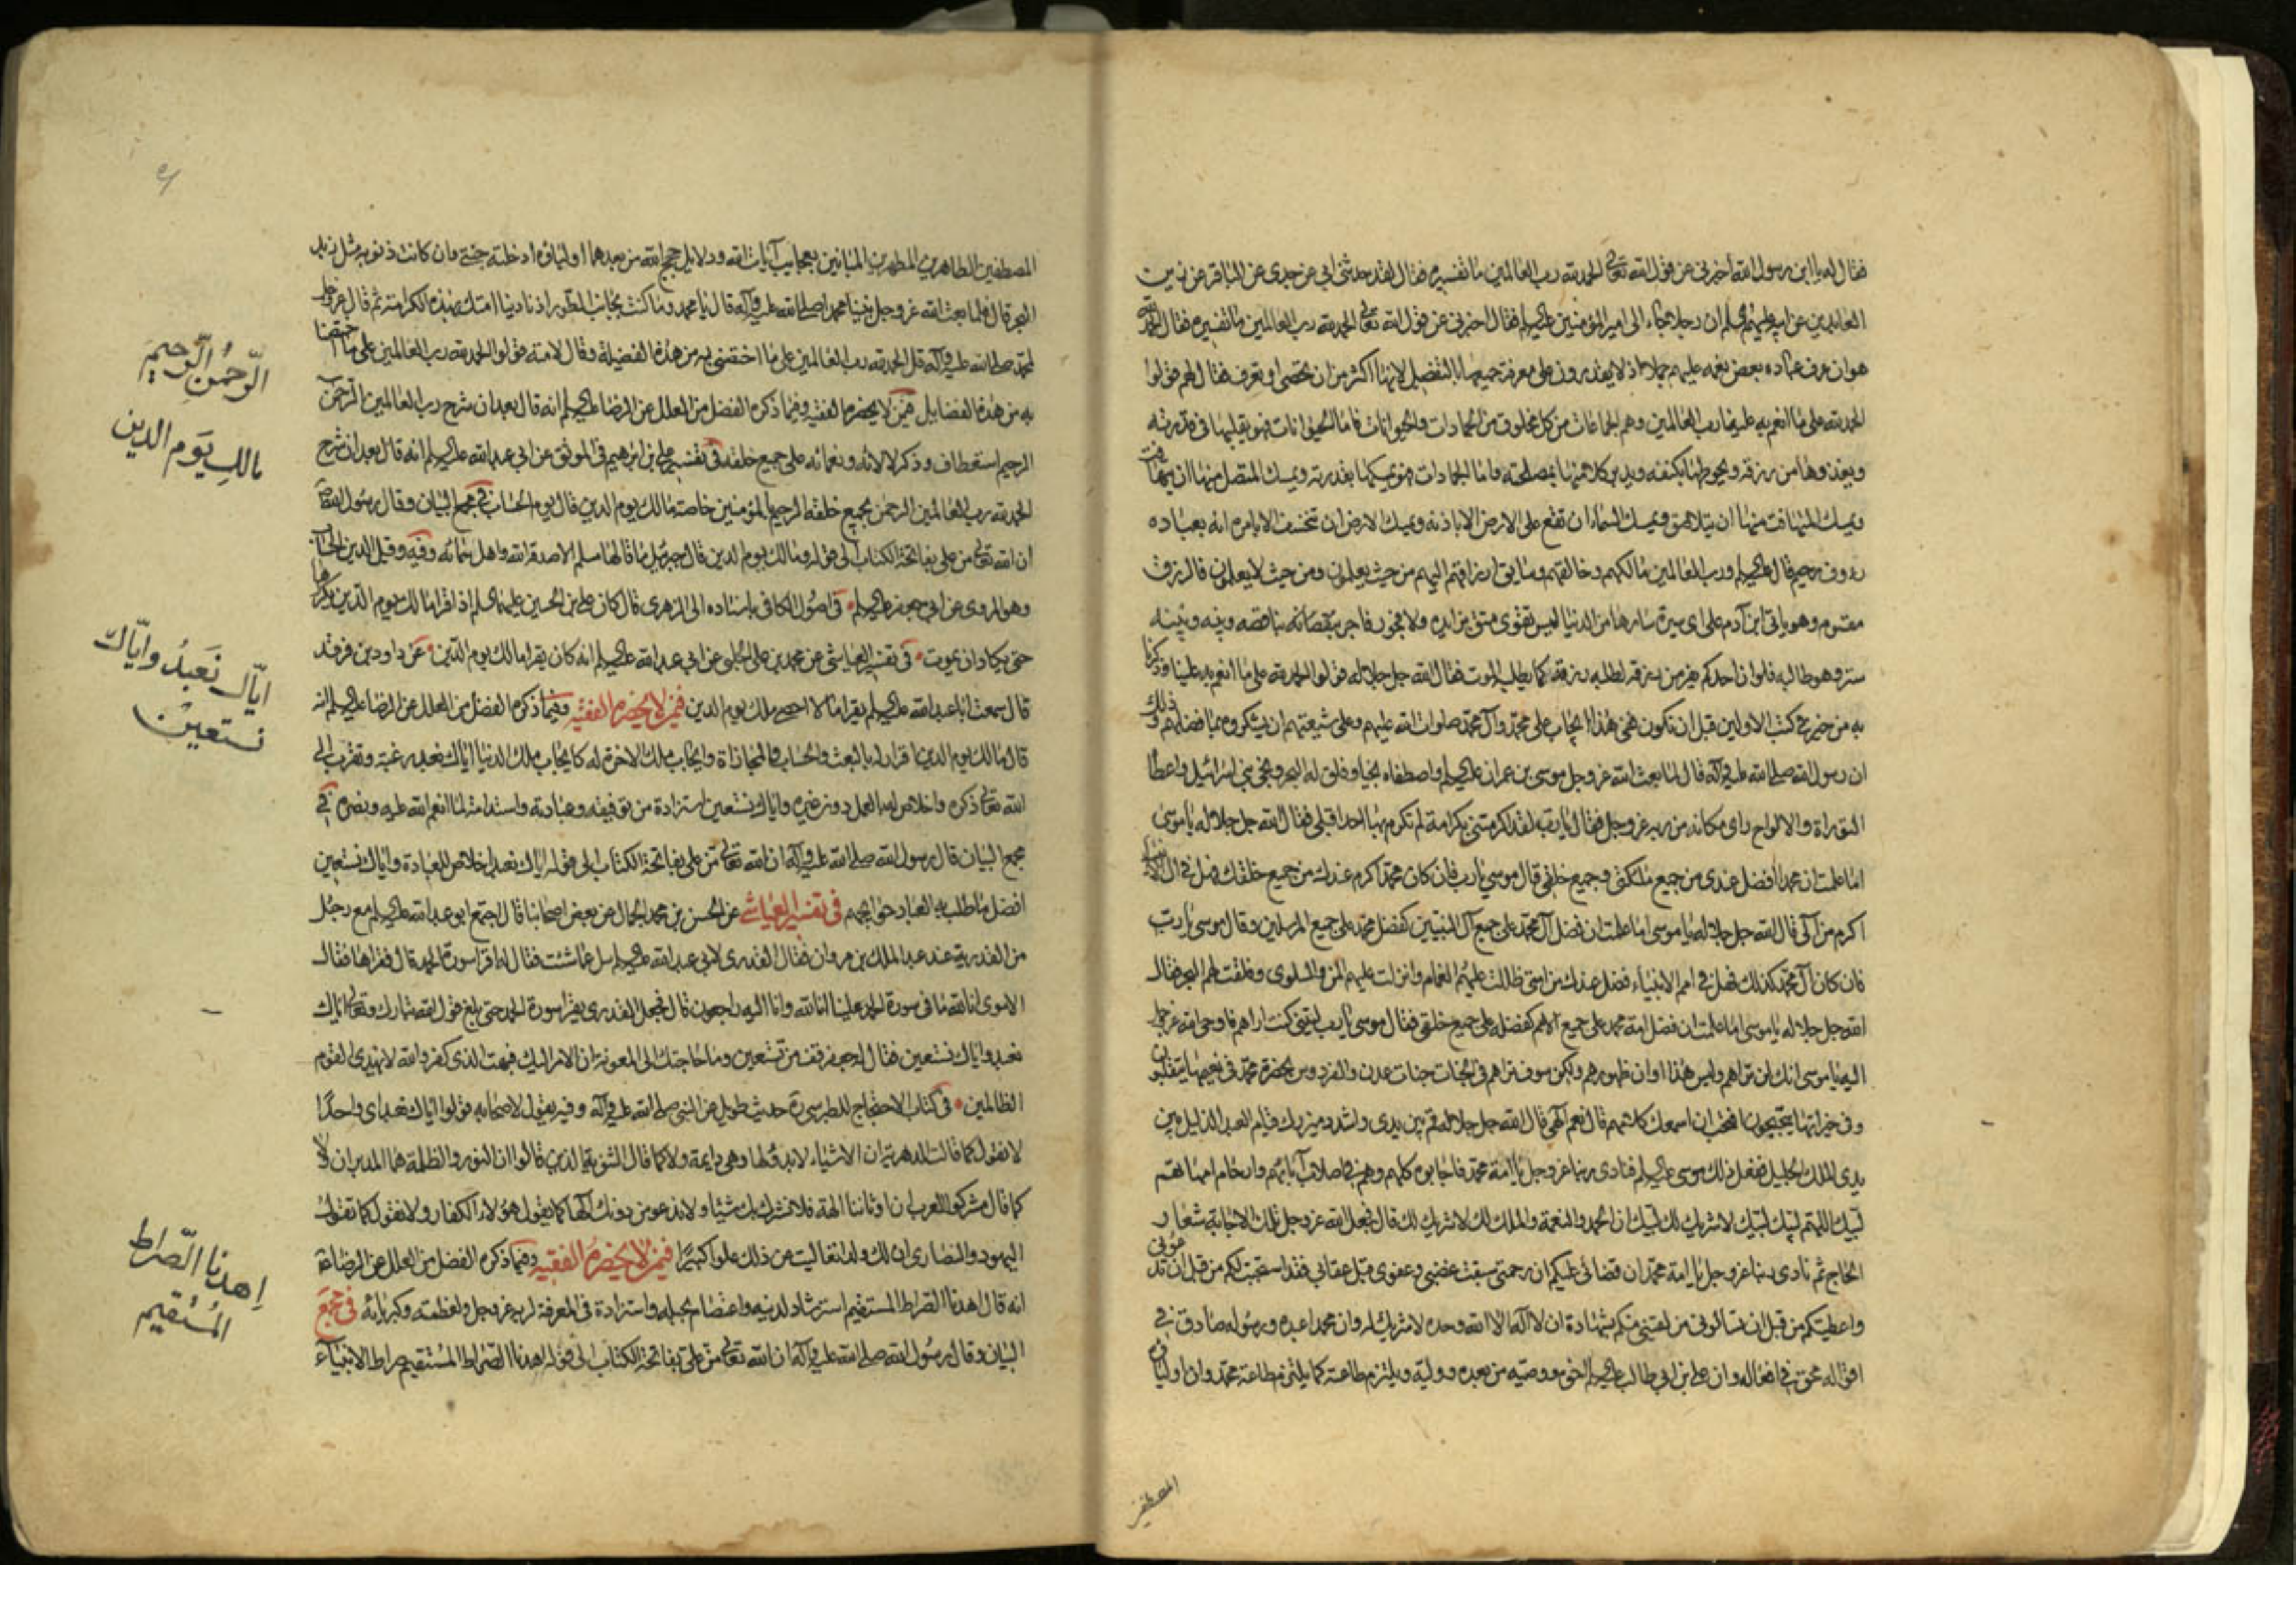 فقال له يا ابن رسول الله اخبرنى عن قول الله تعالى الحمد لله رب العالمين ما تفسيره فقال لقد حدثنى ابى عن جدى عن الباقر عن زين
العابدين عن ابيه عليهم السلم ان رجلا جاء الى امير المؤمنين عليه السلم فقال اخبرنى عن قول الله تعالى الحمد لله رب العالمين ما تفسيره فقال الحمد لله
هو ان عرف عباده بعض نعمه عليهم جملا اذ لا يقدرون على معرفة جميعها بالتفصيل لانها اكثر من ان تحصى او تعرف فقال لهم قولوا
الحمد لله على ما انعم به علينا رب العالمين وهم الجماعات من كل مخلوق من الجمادات والحيوانات فاما الحيوانات فهو يقلبها فى قدرته
ويغذوها من رزقه ويحوطها بكنفه ويدبر كلا منها بمصلحته واما الجمادات فهو يمسكها بقدرته ويمسك المتصل منها ان يتهافت
ويمسك المتهافت منها ان يتلاصق ويمسك السماء ان تقع على الارض الا باذنه ويمسك الارض ان تنخسف الا بامره انه بعباده
رءوف رحيم قال عليه السلم ورب العالمين مالكهم وخالقهم وسايق ارزاقهم اليهم من حيث يعلمون ومن حيث لا يعلمون فالرزق
مقسوم وهو ياتى ابن آدم على اى سيرة سارها من الدنيا ليس تقوى متق بزايده ولا فجور فاجر بناقصه وبينه وبينه
ستر وهو طالبه فلو ان احدكم يفر من رزقه لطلبه رزقه كما يطلبه الموت فقال الله جل جلاله قولوا الحمد لله على ما انعم به علينا وذكرنا
به من خير فى كتب الاولين قبل ان نكون ففى هذا ايجاب على محمد وآل محمد صلوات الله عليهم وعلى شيعتهم ان يشكروه بما فضلهم وذلك
ان رسول الله صلى الله عليه وآله قال لما بعث الله عز وجل موسى بن عمران عليه السلم واصطفاه نجيا وفلق له البحر ونجى بنى اسرائيل واعطاه
التوراة والالواح راى مكانه من ربه عز وجل فقال يا رب لقد اكرمتنى بكرامة لم تكرم بها احدا قبلى فقال الله جل جلاله يا موسى
اما علمت ان محمدا افضل عندى من جميع ملائكتى وجميع خلقى قال موسى يا رب فان كان محمد اكرم عندك من جميع خلقك فهل فى آل الانبياء
اكرم من آلى قال الله جل جلاله يا موسى اما علمت ان فضل آل محمد على جميع آل النبيين كفضل محمد على جميع المرسلين وقال موسى يا رب
فان كان آل محمد كذلك فهل فى امم الانبياء افضل عندك من امتى ظللت عليهم الغمام وانزلت عليهم المن والسلوى وفلقت لهم البحر فقال
الله جل جلاله يا موسى اما علمت ان فضل امة محمد على جميع الامم كفضله على جميع خلقى فقال موسى يا رب ليتنى كنت اراهم فاوحى الله عز وجل
اليه يا موسى انك لن تراهم وليس هذا اوان ظهورهم ولكن سوف تراهم فى الجنات جنات عدن والفردوس بحضرة محمد فى نعيمها يتقلبون
وفى خيراتها يتبحبحون افتحب ان اسمعك كلامهم قال نعم الهى قال الله جل جلاله قم بين يدى واشدد ميزرك قيام العبد الذليل بين
يدى الملك الجليل ففعل ذلك موسى عليه السلم فنادى ربنا عز وجل يا امة محمد فاجابوه كلهم وهم فى اصلاب آبائهم وارحام امهاتهم
لبيك اللهم لبيك لبيك لا شريك لك لبيك ان الحمد والنعمة والملك لك لا شريك لك قال فجعل الله عز وجل تلك الاجابة شعار
الحاج ثم نادى ربنا عز وجل يا امة محمد ان قضائى عليكم ان رحمتى سبقت غضبى وعفوى قبل عقابى فقد استجبت لكم من قبل ان تدعونى
واعطيتكم من قبل ان تسالونى من لقينى منكم بشهادة ان لا اله الا الله وحده لا شريك له وان محمدا عبده ورسوله صادق فى
اقواله محق فى افعاله وان على بن ابى طالب عليه السلم اخوه ووصيه من بعده ووليه ويلتزم طاعته كما يلتزم طاعة محمد وان اولياءه
المصطفين
المصطفين الطاهرين المطهرين المباينين بعجايب آيات الله ودلايل حجج الله من بعدهما اولياؤه ادخلته جنتى وان كانت ذنوبه مثل زبد
البحر قال فلما بعث الله عز وجل نبينا محمدا صلى الله عليه وآله قال يا محمد وما كنت بجانب الطور اذ نادينا امتك بهذه الكرامة ثم قال عز وجل
لمحمد صلى الله عليه وآله قل الحمد لله رب العالمين على ما اختصنى به من هذه الفضيلة وقال لامته قولوا الحمد لله رب العالمين على ما اختصنا
به من هذه الفضايل فى من لا يحضره الفقيه وفيما ذكره الفضل من العلل عن الرضا عليه السلم انه قال بعد ان شرح رب العالمين الرحمن
الرحيم استعطاف وذكر لآلائه ونعمائه على جميع خلقه فى تفسير على بن ابرهيم فى الموثق عن ابى عبد الله عليه السلم انه قال بعد ان شرح
الحمد لله رب العالمين الرحمن بجميع خلقه الرحيم بالمؤمنين خاصة مالك يوم الدين قال يوم الحساب فى مجمع البيان وقال رسول الله ص
ان الله تعالى من على بفاتحة الكتاب الى قوله مالك يوم الدين قال جبرئيل ما قالها مسلم الا صدقه الله واهل سمائه وفيه وقيل الدين الحساب
وهو المروى عن ابى جعفر عليه السلم فى اصول الكافى باسناده الى الزهرى قال كان على بن الحسين عليهما السلم اذا قرا مالك يوم الدين يكررها
حتى يكاد ان يموت فى تفسير العياشى عن محمد بن على الحلبى عن ابى عبد الله عليه السلم انه كان يقرا مالك يوم الدين عن داود بن فرقد
قال سمعت ابا عبد الله عليه السلم يقرا ما لا احصى ملك يوم الدين فى من لا يحضره الفقيه وفيما ذكره الفضل من العلل عن الرضا عليه السلم انه
قال مالك يوم الدين اقرار له بالبعث والحساب والمجازاة وايجاب ملك الاخرة له كايجاب ملك الدنيا اياك نعبد رغبة وتقرب الى
الله تعالى ذكره واخلاص له بالعمل دون غيره واياك نستعين استزادة من توفيقه وعبادته واستدامة لما انعم الله عليه ونصره فى
مجمع البيان قال رسول الله صلى الله عليه وآله ان الله تعالى من على بفاتحة الكتاب الى قوله اياك نعبد اخلاص للعبادة واياك نستعين
افضل ما طلب به العباد حوايجهم فى تفسير العياشى عن الحسن بن محمد الجمال عن بعض اصحابنا قال اجتمع ابو عبد الله عليه السلم مع رجل
من القدرية عند عبد الملك بن مروان فقال القدرى لابى عبد الله عليه السلم سل عما شئت فقال له اقرا سورة الحمد قال فقراها فقال
الاموى انا لله ما فى سورة الحمد علينا انا لله وانا اليه راجعون قال فجعل القدرى يقرا سورة الحمد حتى بلغ قول الله تبارك وتعالى اياك
نعبد واياك نستعين فقال له جعفر قف من تستعين وما حاجتك الى المعونة ان الامر اليك فبهت الذى كفر والله لا يهدى القوم
الظالمين فى كتاب الاحتجاج للطبرسى ره حديث طويل عن النبى صلى الله عليه وآله وفيه يقول لاصحابه قولوا اياك نعبد اى واحدا
لا نقول كما قالت الدهرية ان الاشياء لا بدو لها وهى دايمة ولا كما قال الثنوية الذين قالوا ان النور والظلمة هما المدبران ولا
كما قال مشركوا العرب ان اوثاننا الهة فلا نشرك بك شيئا ولا ندعو من دونك الها كما يقول هؤلاء الكفار ولا نقول كما تقول
اليهود والنصارى ان لك ولدا تعاليت من ذلك علوا كبيرا فى من لا يحضره الفقيه وفيما ذكره الفضل من العلل عن الرضا ع
انه قال اهدنا الصراط المستقيم استرشاد لدينه واعتصام بحبله واستزادة فى المعرفة لربه عز وجل ولعظمته وكبريائه فى مجمع
البيان وقال رسول الله صلى الله عليه وآله ان الله تعالى من على بفاتحة الكتاب الى قوله اهدنا الصراط المستقيم صراط الانبياء
الرّحمن الرّحيم
مالك يَوم الدين
ايّاك نَعبدُ وايّاك
نستعين
اهدنا الصّراط
المُستقيم